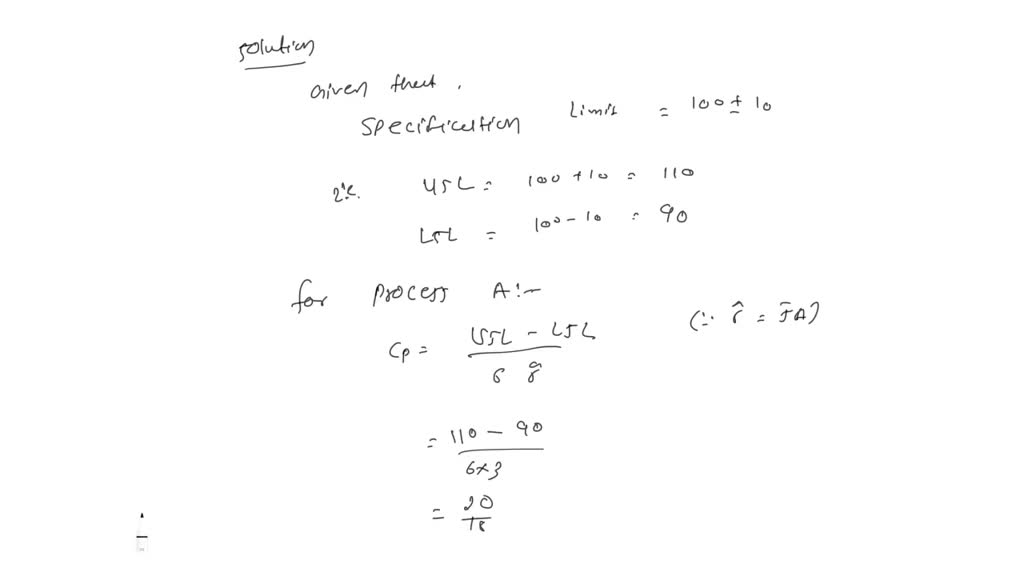 solution
Given that,
Specification Limit = 100 ± 10
i.e. USL = 100 + 10 = 110
LSL = 100 - 10 = 90
for process A:-
Cp = USL - LSL / 6 σ̂ (∵ σ̂ = S̄A)
= 110 - 90 / 6×3
= 20 / 18